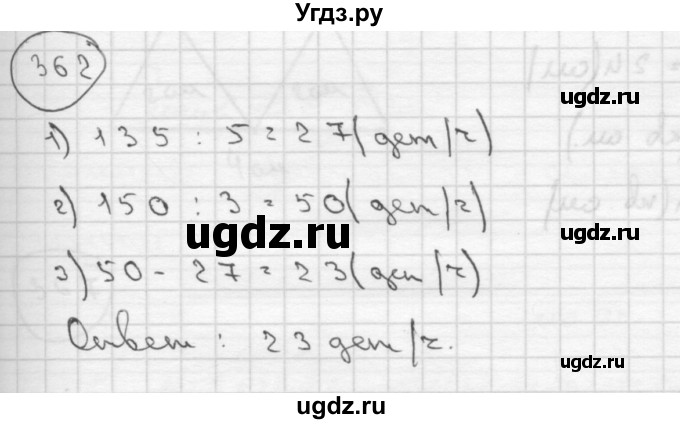 Угдз.ру
362
ugdz.ru
1) 135 : 5 = 27 (дет/ч)
ugdz.ru
2) 150 : 3 = 50 (дет/ч)
ugdz.ru
ugdz.ru
3) 50 - 27 = 23 (дет/ч)
Ответ : 23 дет/ч.
ugdz.ru
ugdz.ru